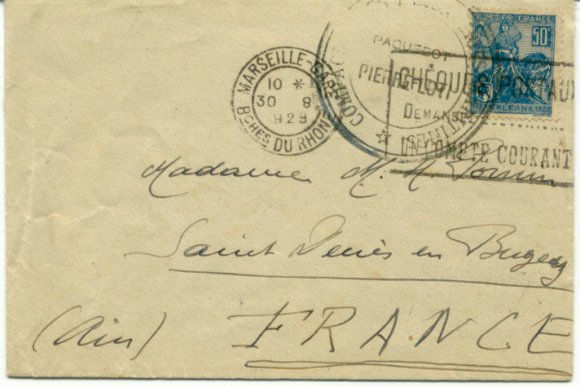 MARSEILLE-GARE
10 *
30 8
1929
BCHES DU RHONE
PAQUEBOT
PIERRE LOTI
POSTES FRANCE
50c
ORLEANS
CHÈQUES POSTAUX
DEMANDEZ
UN COMPTE COURANT
Madame M.
Saint Denis en Bugey
(Ain) FRANCE